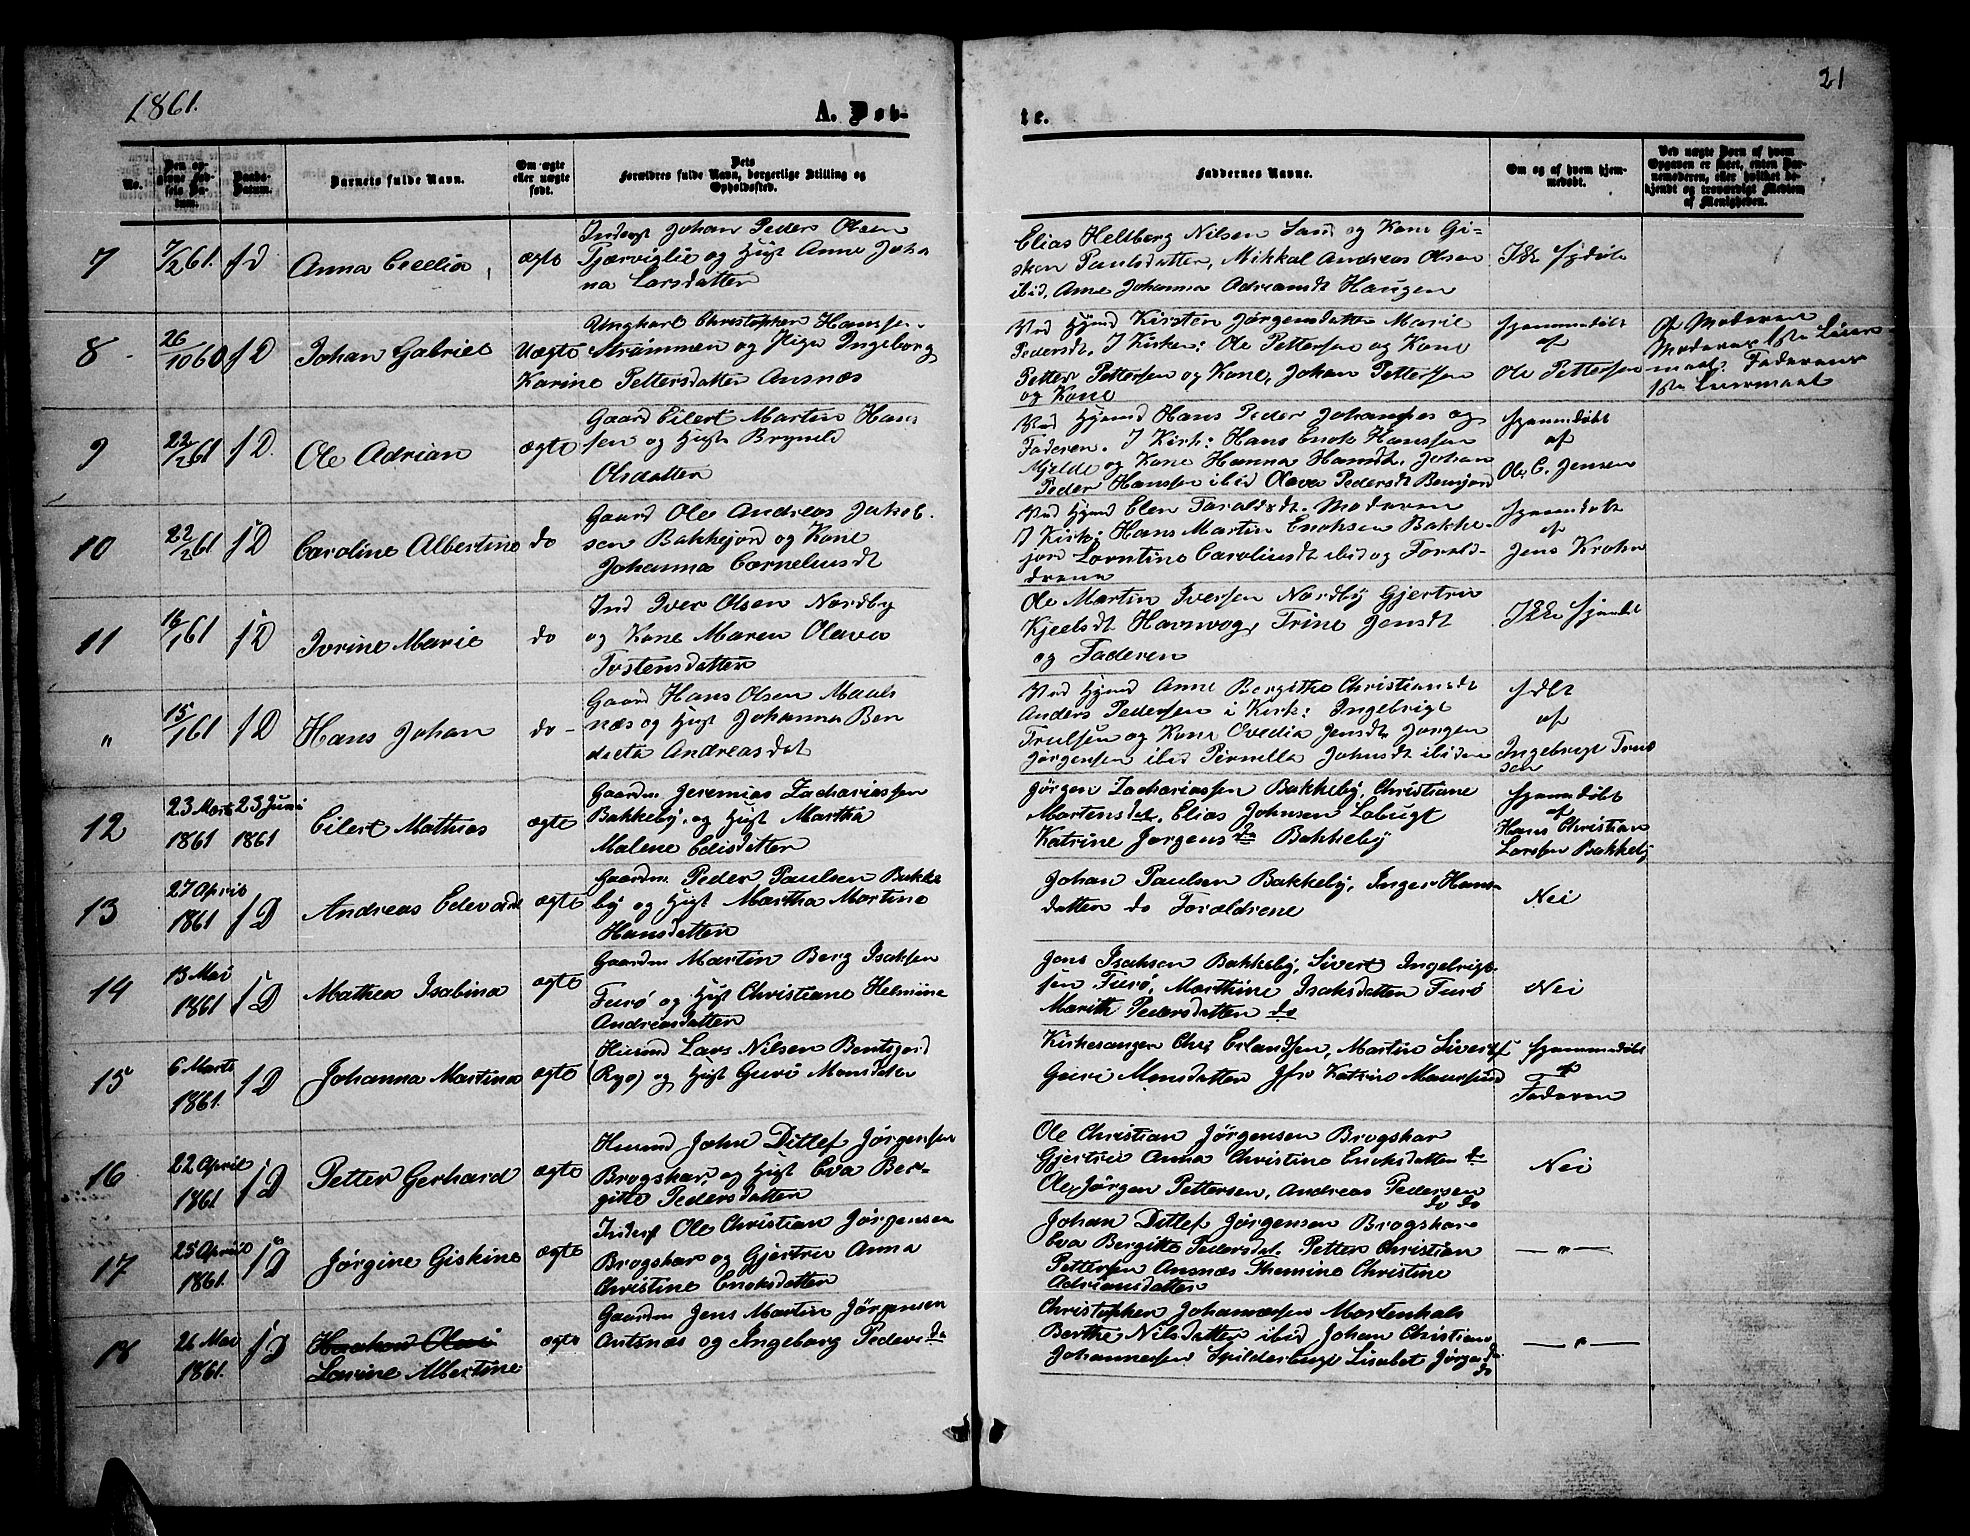 1861.
21
A. Døb-
te.
No.
Den op-
givne Fød-
sels Da-
tum.
Daabs-
Datum.
Barnets fulde Navn.
Om ægte
eller uægte
født.
Dets
Forældres fulde Navn, borgerlige Stilling og
Opholdssted.
Faddernes Navne.
Om og af hvem hjem-
medøbt.
Ved uægte Børn af hvem
Opgaven er skeet, enten Bar-
nemoderen, eller hvilket be-
kjendt og troværdigt Medlem
af Menigheden.
7
7/2 61.
Anna Cecelia
ægte
Johan Peder Olsen
og Anne Joha
na Larsdatter
Elias Hellberg Nilsen Sand og Kone Gi-
sken Paulsdatter, Mikkal Andreas Olsen
ibid, Ane Johanna Haugen
Ikke
8
26/10 60
Johan Gabriel
Uægte
Ungkarl Christopher Hanssen
Strømmen og Pige Ingeborg
Karine Pettersdatter Ansnæs
Ved Hjemd Kirsten Jørgensdatter Marie
Pedersdt. I Kirken: Ole Pettersen og Kone
Petter Pettersen og Kone, Johan Pettersen
og Kone
Hjemmedøbt
af
Ole Pettersen
Af Moderen
Moderens 1ste Leier-
maal. Faderens
1ste Leiermaal
9
22/2 61
Ole Adrian
ægte
Gaard Eilert Martin Hans
sen og Hust Brynild
Olsdatter
Ved Hjemd Hans Peder Johannes og
Faderen. I Kirk: Hans Enok Hanssen
Mjelde og Kone Hanna Hansdt. Johan
Peder Hanssen ibid Olava Pedersdt
Hjemmdøbt
af
Ole C. Jensen
10
22/2 61
Caroline Albertine
do
Gaard Ole Andreas Jakob-
sen Bakkejord og Kone
Johanna Corneliusdt
Ved Hjemd Elen Taraldsdt. Moderen
I Kirk: Hans Martin Enoksen Bakke-
jord Carolinsdt ibid og Foræld-
drene
Hjemmdøbt
af
Jens Krohn
11
16/1 61
Ivrine Marie
do
Ind Iver Olsen Nordby
og Kone Maren Olava
Tostensdatter
Ole Martin Iversen Nordby Gjertrui
Kjeelsdt Havnvog, Trine Jensdt
og Faderen
Ikke
"
15/1 61
Hans Johan
do
Gaard Hans Olsen Maals
næs og Hust Johanna Ben
dicta Andreasdat
Ved Hjemd Anne Bergithe Christiansdt
Anders Pedersen i Kirk: Ingebrigt
Trulsen og Kone Ovedia Jensdt Jørgen
Jørgensen ibid Pernella Johnsdt ibidem
af
Ingebrigt Trul
sen
12
23 Marts
1861
23 Juni
1861
Eilert Mathias
ægte
Gaardm Jeremias Zachariassen
Bakkeby, og Hust Martha
Malene Edisdatter
Jørgen Zachariassen Bakkeby, Christiane
Martensdat, Elias Johnsen Labugt
Katrine Jørgensda Bakkeby
Hjemmdøbt
af
Hans Christian
Larssen Bakkeby
13
27 April
1861
Andreas Edevard
ægte
Gaardm Peder Paulsen Bakke
by og Hust Martha Martine
Hansdatter
Johan Paulsen Bakkeby, Inger Hans-
datter do Forældrene
Nei
14
13 Mai
1861
Mathea Isabina
ægte
Gaardm Martin Berg Isaksen
Furø og Hust Christiane Helmine
Andreasdatter
Jens Isaksen Bakkeby, Sivert Ingebrigt-
sen Furø, Marthine Isaksdatter Furø
Marith Pedersdatter do
Nei
15
6 Marts
1861.
Johanna Martina
ægte
Lars Nilsen Bentsjord
(Ryø) og Hust Guri Monsdatter
Kirkesanger Chr. Erlandsen, Martin Siverts
Guri Monsdatter Jfr Katrine Maursund
Hjemmedøbt
af
Faderen
16
22 April
1861.
Petter Gerhard
ægte
John Ditlef Jørgensen
Brogskar, og Hust Eva Ber-
gitte Pedersdatter
Ole Christian Jørgensen Brogskar
Gjertrui Anna Christine Enoksdatter do
Ole Jørgen Pettersen, Andreas Pedersen
do do
Nei
17
25 April
1861.
Jørgine Giskine
ægte
Inderst Ole Christian Jørgensen
Brogskar og Gjertru Anna
Christine Enoksdatter
Johan Ditlef Jørgensen Brogskar
Eva Bergitte Pedersdat. Petter Christian
Pettersen Ansnæs Themine Christine
Adriansdatter
— " —
18
26 Mai
1861.
Lavine Albertine
ægte
Gaardm Jens Martin Jørgensen
Antsnæs og Ingeborg Peders da
Christopher Johannessen Mortenhals
Berthe Nilsdatter ibid Johan Christian
Johannessen Spilderbugt Lisabet Jørgens da
do
— " —